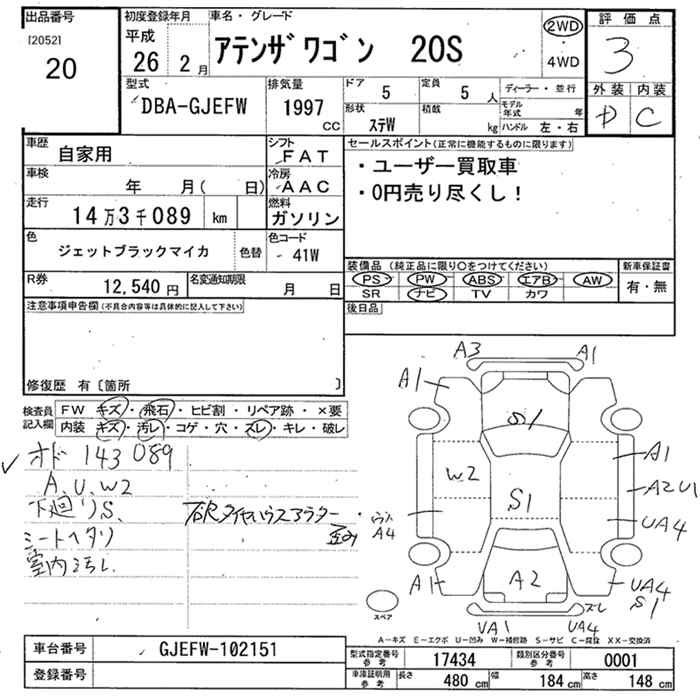 出品番号
[2052]
20
初度登録年月
平成
26 2月
車名・グレード
アテンザワゴン 20S
2WD
4WD
評価点
3
外装 内装
D C
型式
DBA-GJEFW
排気量
1997
CC
ドア 5
定員 5 人
形状 ステW
積載 kg
ディーラー・並行
モデル年式 年
ハンドル 左・右
車歴
自家用
シフト
FAT
車検
年 月( 日)
冷房
AAC
走行
14万3千089 km
燃料
ガソリン
色
ジェットブラックマイカ
色替
色コード
41W
R券
12,540円
名変通知期限
月 日
セールスポイント(正常に機能するものに限ります)
・ユーザー買取車
・0円売り尽くし!
装備品(純正品に限り○をつけてください)
PS PW ABS エアB AW
SR ナビ TV カワ
新車保証書
有・無
後日品
注意事項申告欄(不具合内容等は具体的に記入して下さい)
修復歴 有〔箇所 〕
検査員記入欄
FW キズ・飛石・ヒビ割・リペア跡・×要
内装 キズ・汚レ・コゲ・穴・スレ・キレ・破レ
オド 143089
A、U、W2
下廻りS、
シートヘタリ
室内汚レ
右Rタイヤハウスアウター
歪み
A3 A1
A1
S1
W2
A1
A2U1
S1
UA4
A4
A1
A2
UA4
S1
スレ
UA1 UA4
スペア
A-キズ E-エクボ U-凹み W-補修跡 S-サビ C-腐蝕 XX-交換済
車台番号
GJEFW-102151
登録番号
型式指定番号
参考
17434
類別区分番号
参考
0001
車庫証明用
参考
長さ 480 cm
幅 184 cm
高さ 148 cm